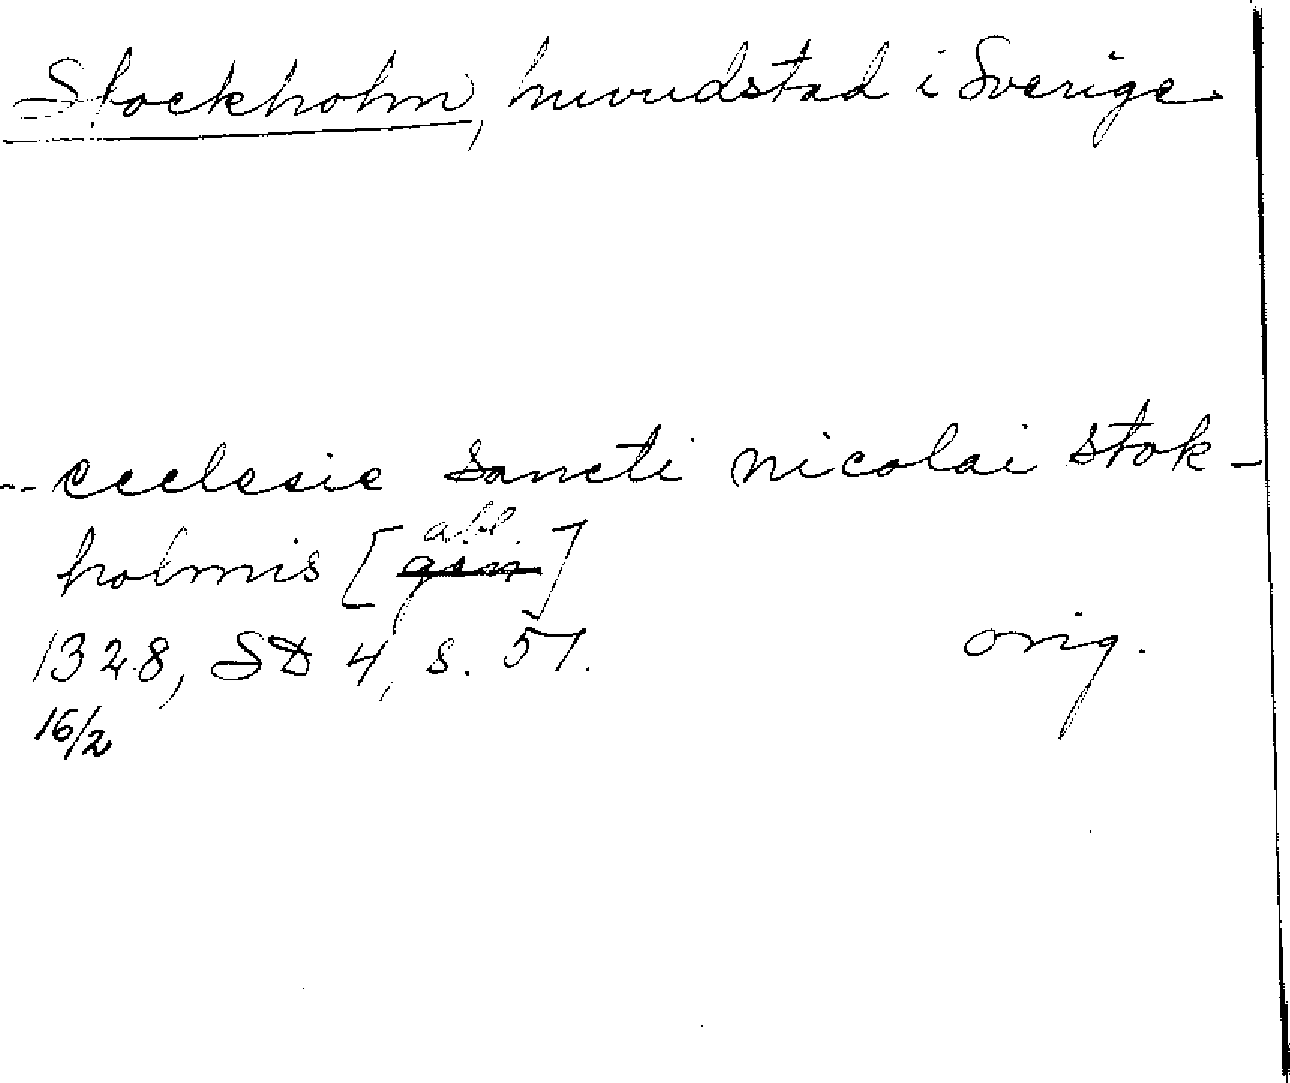 Stockholm, huvudstad i Sverige
-- ecclesie sancti nicolai stok-
abl.
holmis [gen]
1328, SD 4, s. 57. orig.
16/2